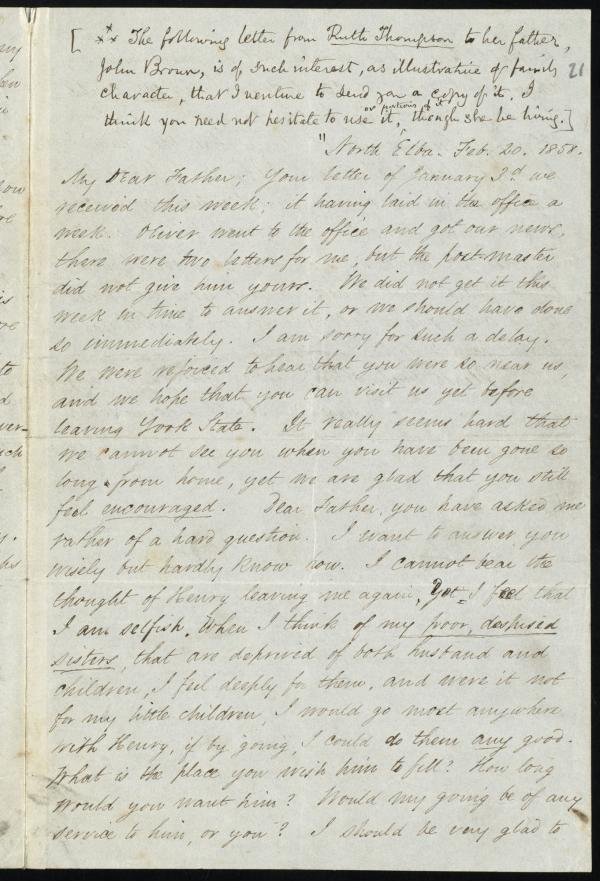 [ *** The following letter from Ruth Thompson to her father,
John Brown, is of such interest, as illustrative of family 21
character, that I venture to send you a copy of it. I
think you need not hesitate to use it, or portions of it, though she be living.]
"North Elba. Feb. 20. 1858.
My Dear Father; Your letter of January 3d we
received this week; it having laid in the office a
week. Oliver went to the office and got our news,
there were two letters for me, but the post-master
did not give him yours. We did not get it this
week in time to answer it, or we should have done
so immediately. I am sorry for such a delay.
We were rejoiced to hear that you were so near us,
and we hope that you can visit us yet before
leaving York State. It really seems hard that
we cannot see you when you have been gone so
long from home, yet we are glad that you still
feel encouraged. Dear Father, you have asked me
rather of a hard question. I want to answer you
wisely but hardly know how. I cannot bear the
thought of Henry leaving me again, yet I feel that
I am selfish. When I think of my poor, despised
sisters, that are deprived of both husband and
children, I feel deeply for them, and were it not
for my little children, I would go most anywhere
with Henry, if by going, I could do them any good.
What is the place you wish him to fill? How long
would you want him? Would my going be of any
service to him, or you? I should be very glad to